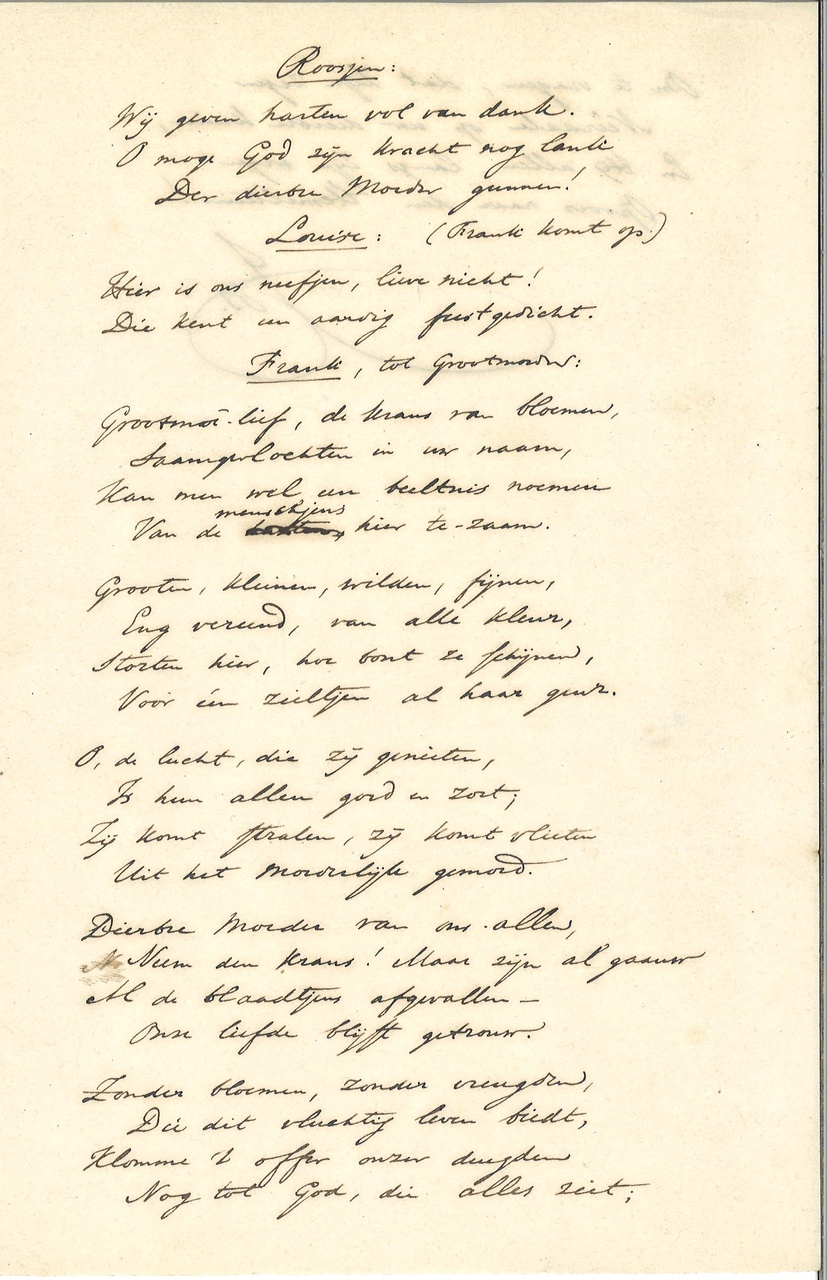 Roosjen:
Wij geven harten vol van dank.
O moge God zijn kracht nog lank
Der dierbre Moeder gunnen!
Louise: (Frank komt op)
Hier is ons neefjen, lieve nicht!
Die kent een aardig feestgedicht.
Frank, tot Grootmoeder:
Grootmoê-lief, de krans van bloemen,
Saamgevlochten in uw naam,
Kan men wel een beeltnis noemen
Van de menschjens hier te-zaam.
Grooten, kleinen, wilden, fijnen,
Eng vereend, van alle kleur,
Storten hier, hoe bont ze schijnen,
Voor één zieltjen al haar geur.
O, de lucht, die zij genieten,
Is hun allen goed en zoet;
Zij komt stralen, zij komt vlieten
Uit het moederlijk gemoed.
Dierbre Moeder van ons allen,
Neem den krans! Maar zijn al gaauw
Al de blaadtjens afgevallen —
Onze liefde blijft getrouw.
Zonder bloemen, zonder vreugden,
Die dit vluchtig leven biedt,
Klomme 't offer onzer deugden
Nog tot God, die alles ziet;